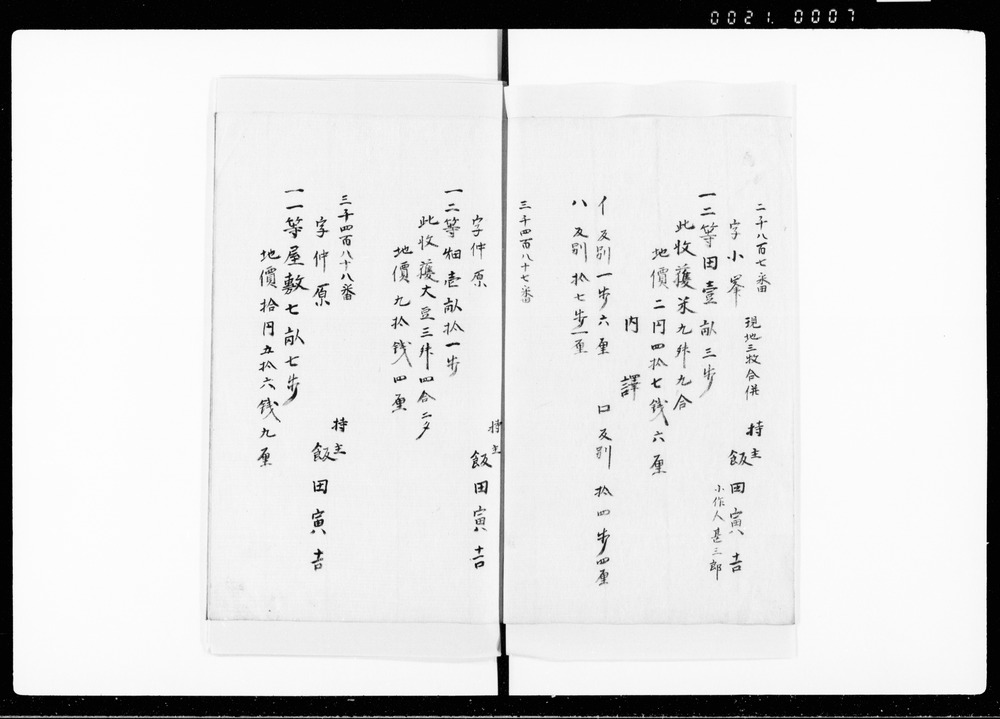 0021. 0007
二千八百七番
字小峯 現地三枚合併
持主 飯田寅吉
小作人 甚三郎
一二等田壹畝三歩
此收穫米九舛九合
地價二円四拾七銭六厘
内譯
イ反別一歩六厘 ロ反別拾四歩四厘
ハ反別拾七歩一厘
三千四百八十七番
字仲原
持主 飯田寅吉
一二等畑壱畝拾一歩
此收穫大豆三舛四合二夕
地價九拾銭四厘
三千四百八十八番
字仲原
持主 飯田寅吉
一一等屋敷七畝七歩
地價拾円五拾六銭九厘